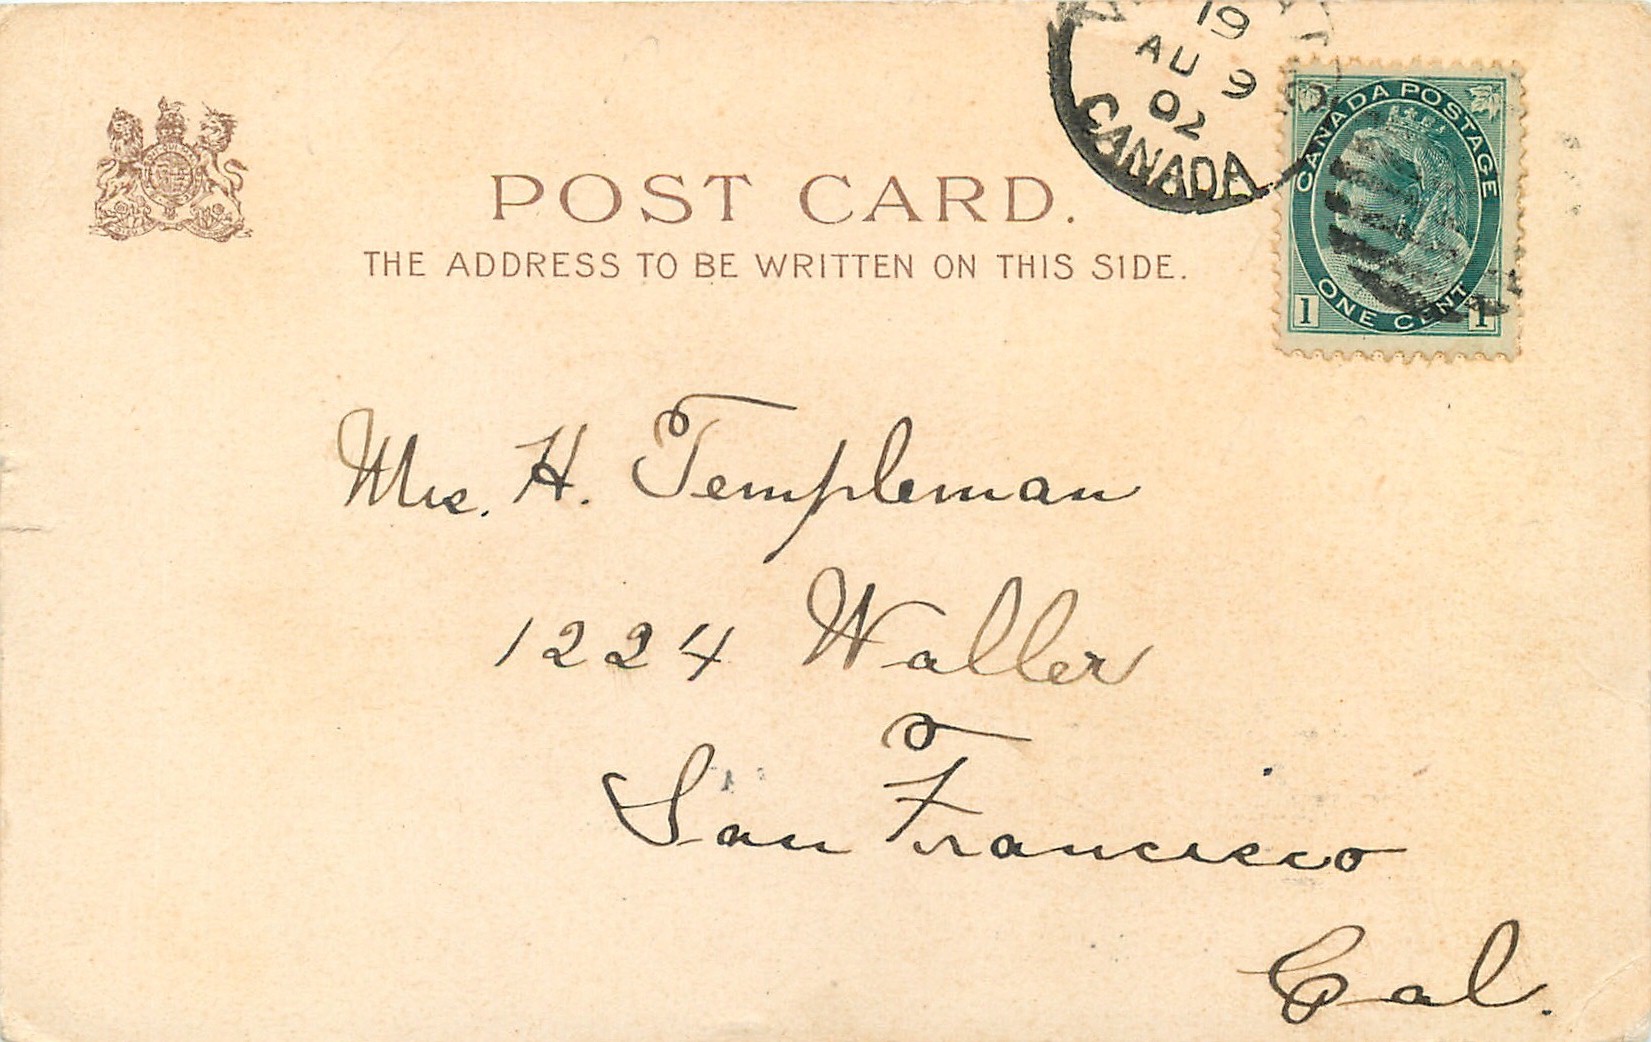 19
AU 9
02
CANADA
CANADA POSTAGE
ONE CENT
1 1
POST CARD.
THE ADDRESS TO BE WRITTEN ON THIS SIDE.
Mrs. H. Templeman
1224 Waller
San Francisco
Cal.